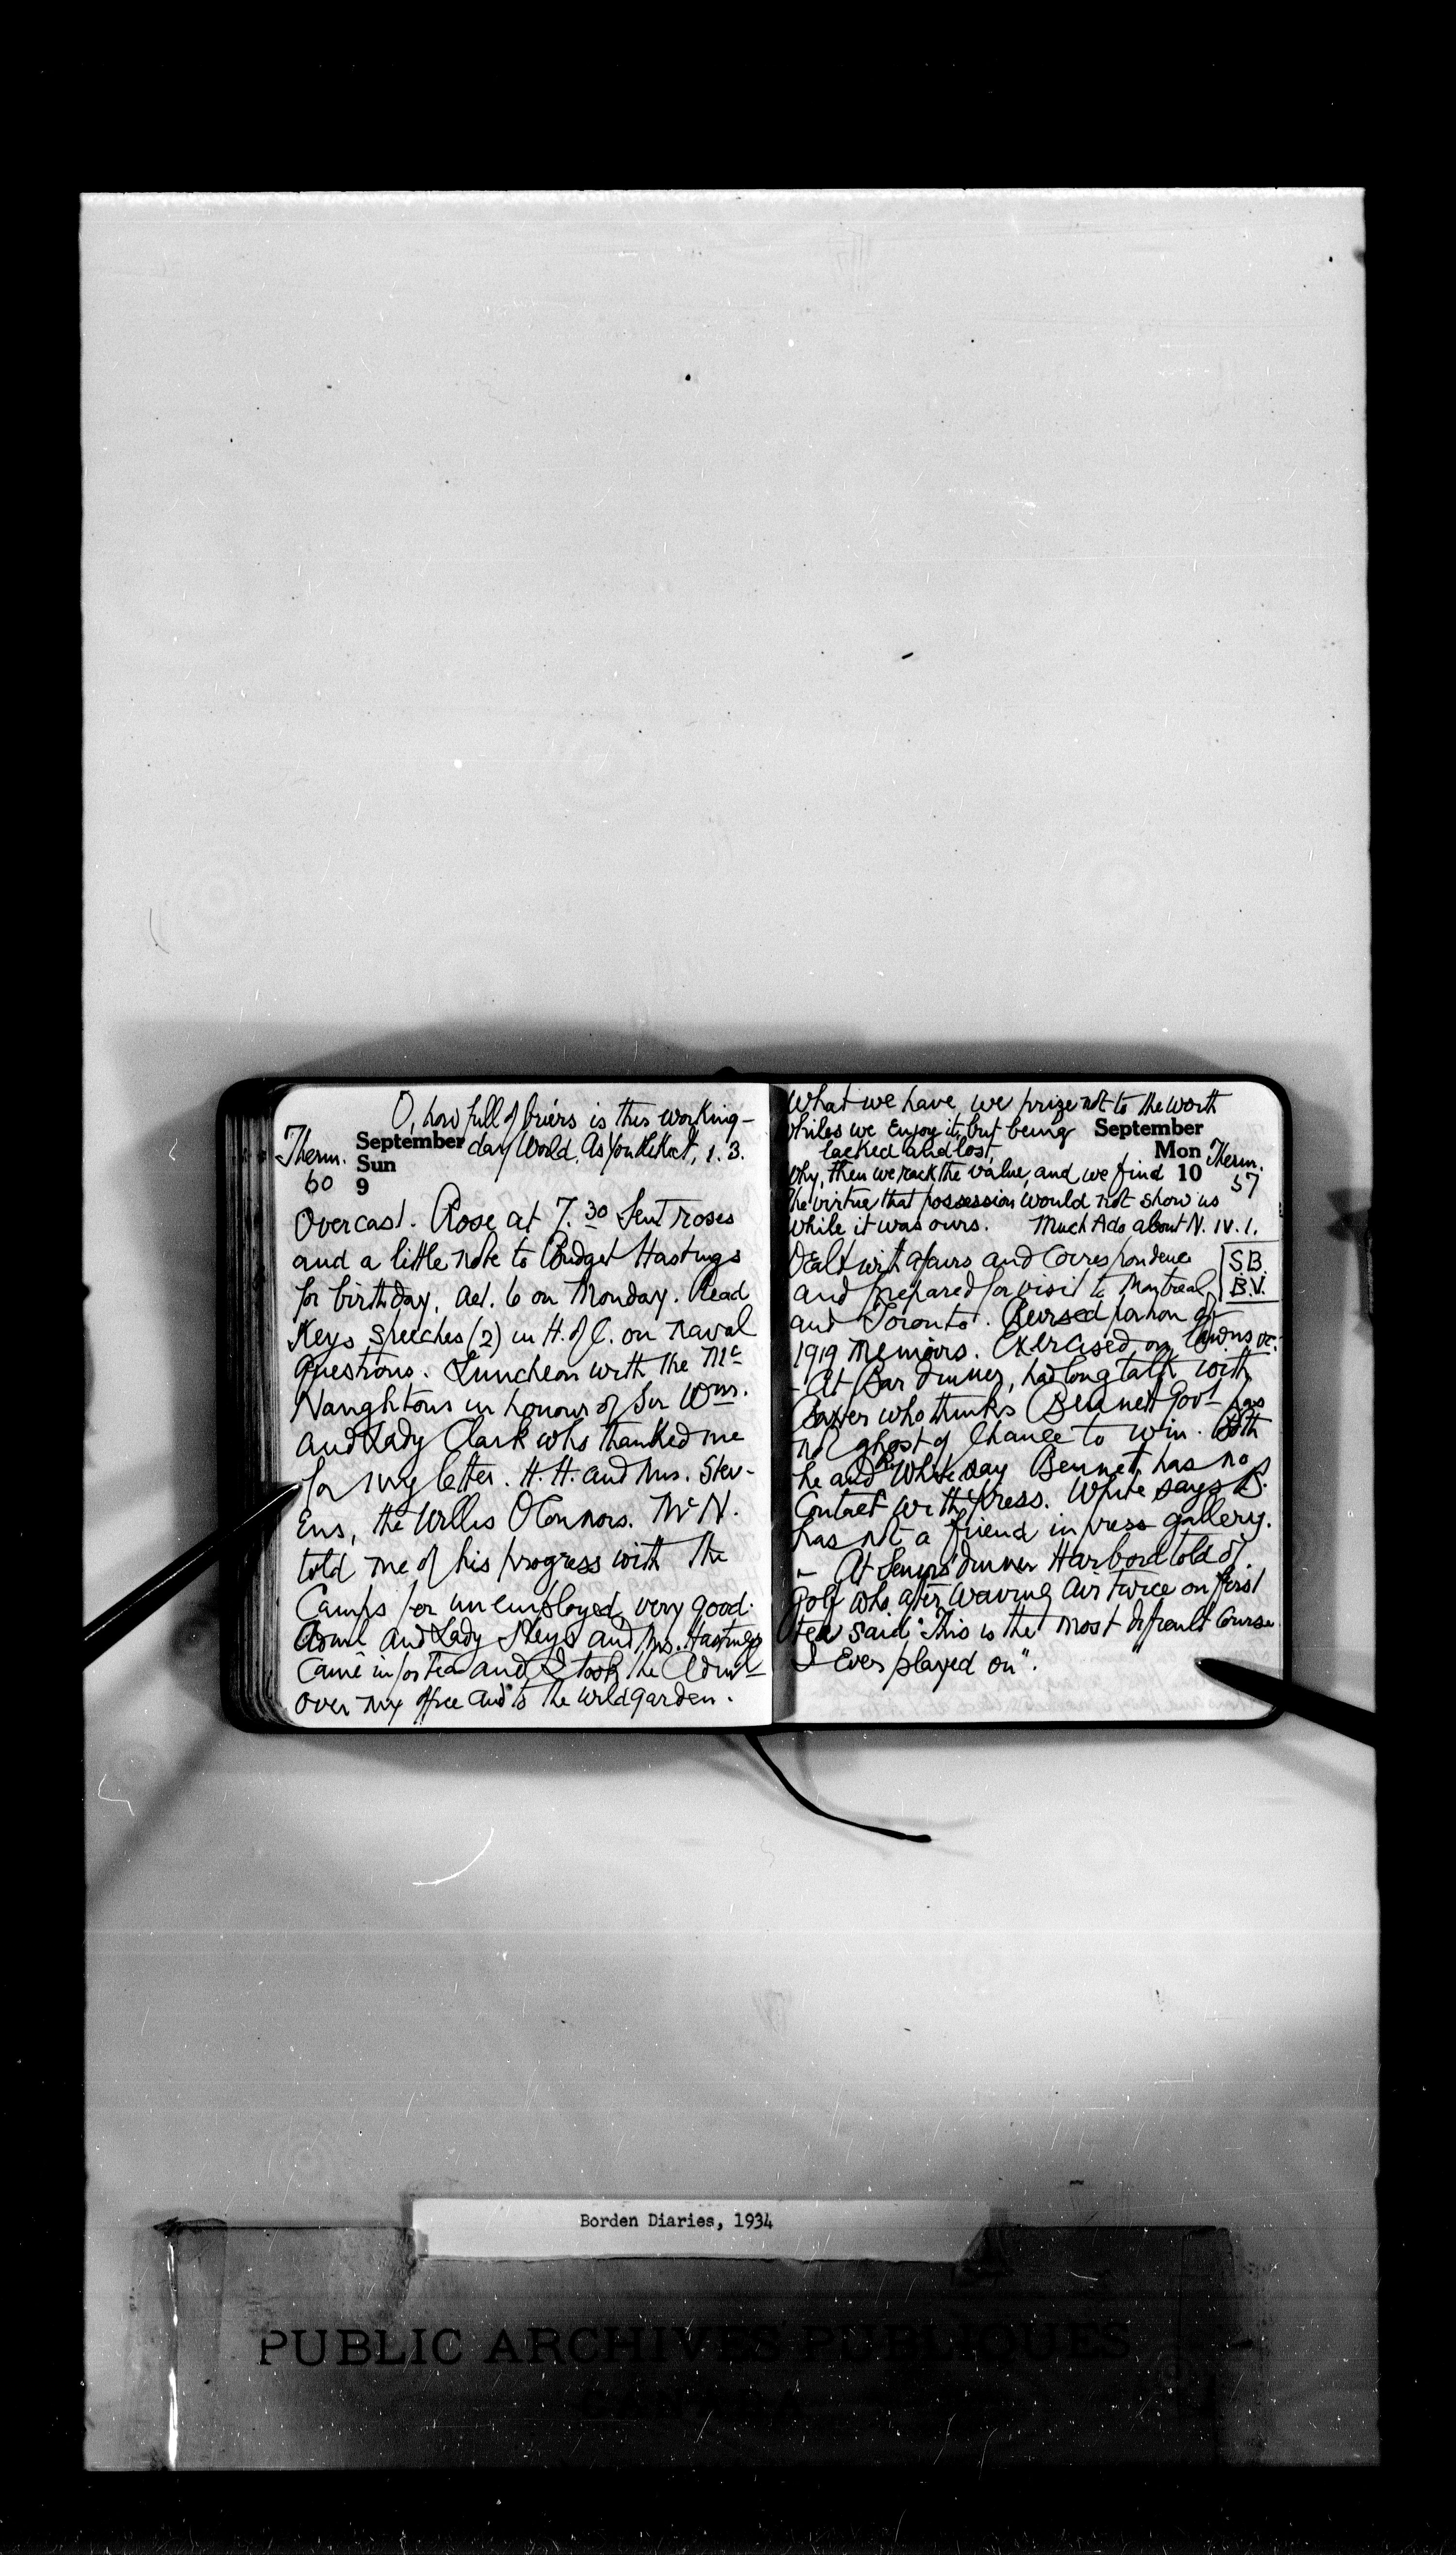 O, how full of briers is this working-
day World. As You Like it, 1. 3.
Therm.
60
September
Sun
9
Overcast. Rose at 7.30 Sent roses
and a little note to Bridget Hastings
for birthday, aet. 6 on Monday. Read
Keys speeches (2) in H. of C. on naval
questions. Luncheon with the Mc
Naughtons in honour of Sir Wm.
and Lady Clark who thanked me
for my letter. H. H. and Mrs. Stev-
ens, the Willis O'Connors. McN.
told me of his progress with the
Camps for unemployed, very good.
Adml and Lady Keys and Mrs. Hastings
came in for tea and I took the Adml
over my office and to the wild garden.
What we have, we prize not to the worth
Whiles we enjoy it, but being
lacked and lost,
Why, then we rack the value, and we find
The virtue that possession would not show us
While it was ours. Much Ado about N. IV. 1.
September
Mon
10
Therm.
57
Dealt with affairs and Correspondence
S.B.
B.V.
and prepared for visit to Montreal
and Toronto. Revised portion of
1919 Memoirs. Exercised on lawns &c.
- At Bar dinner, had long talk with
who thinks Bennett Govt has
not ghost of chance to win. Both
he and White say Bennett has no
Contact with press. White says B.
has not a friend in press gallery.
- At dinner Harbord told of
Golf who after waving air twice on first
tee said "This is the most difficult Course
I Ever played on".
Borden Diaries, 1934
PUBLIC ARCHIVES PUBLIQUES
CANADA